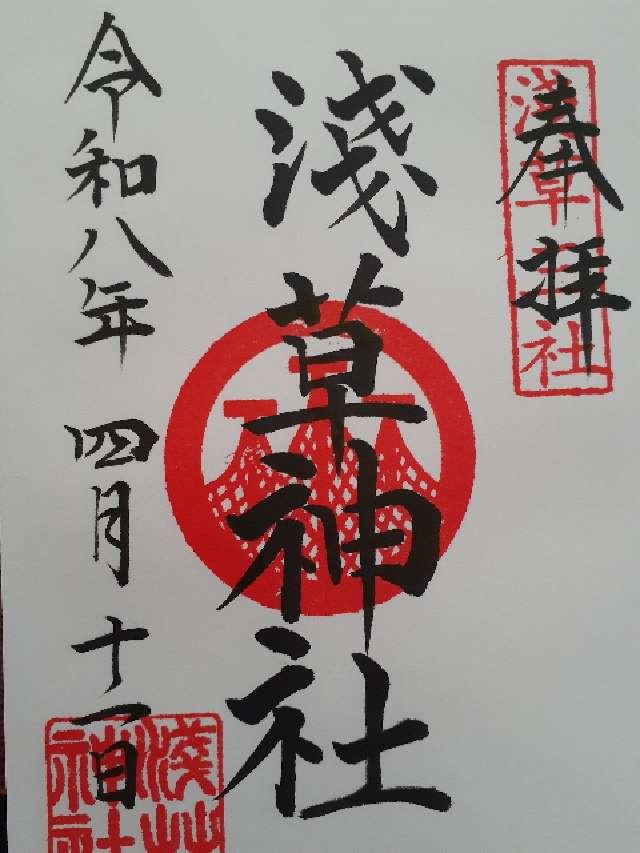 奉拝
淺草神社
淺草神社
令和八年 四月 十一日
淺草
神社